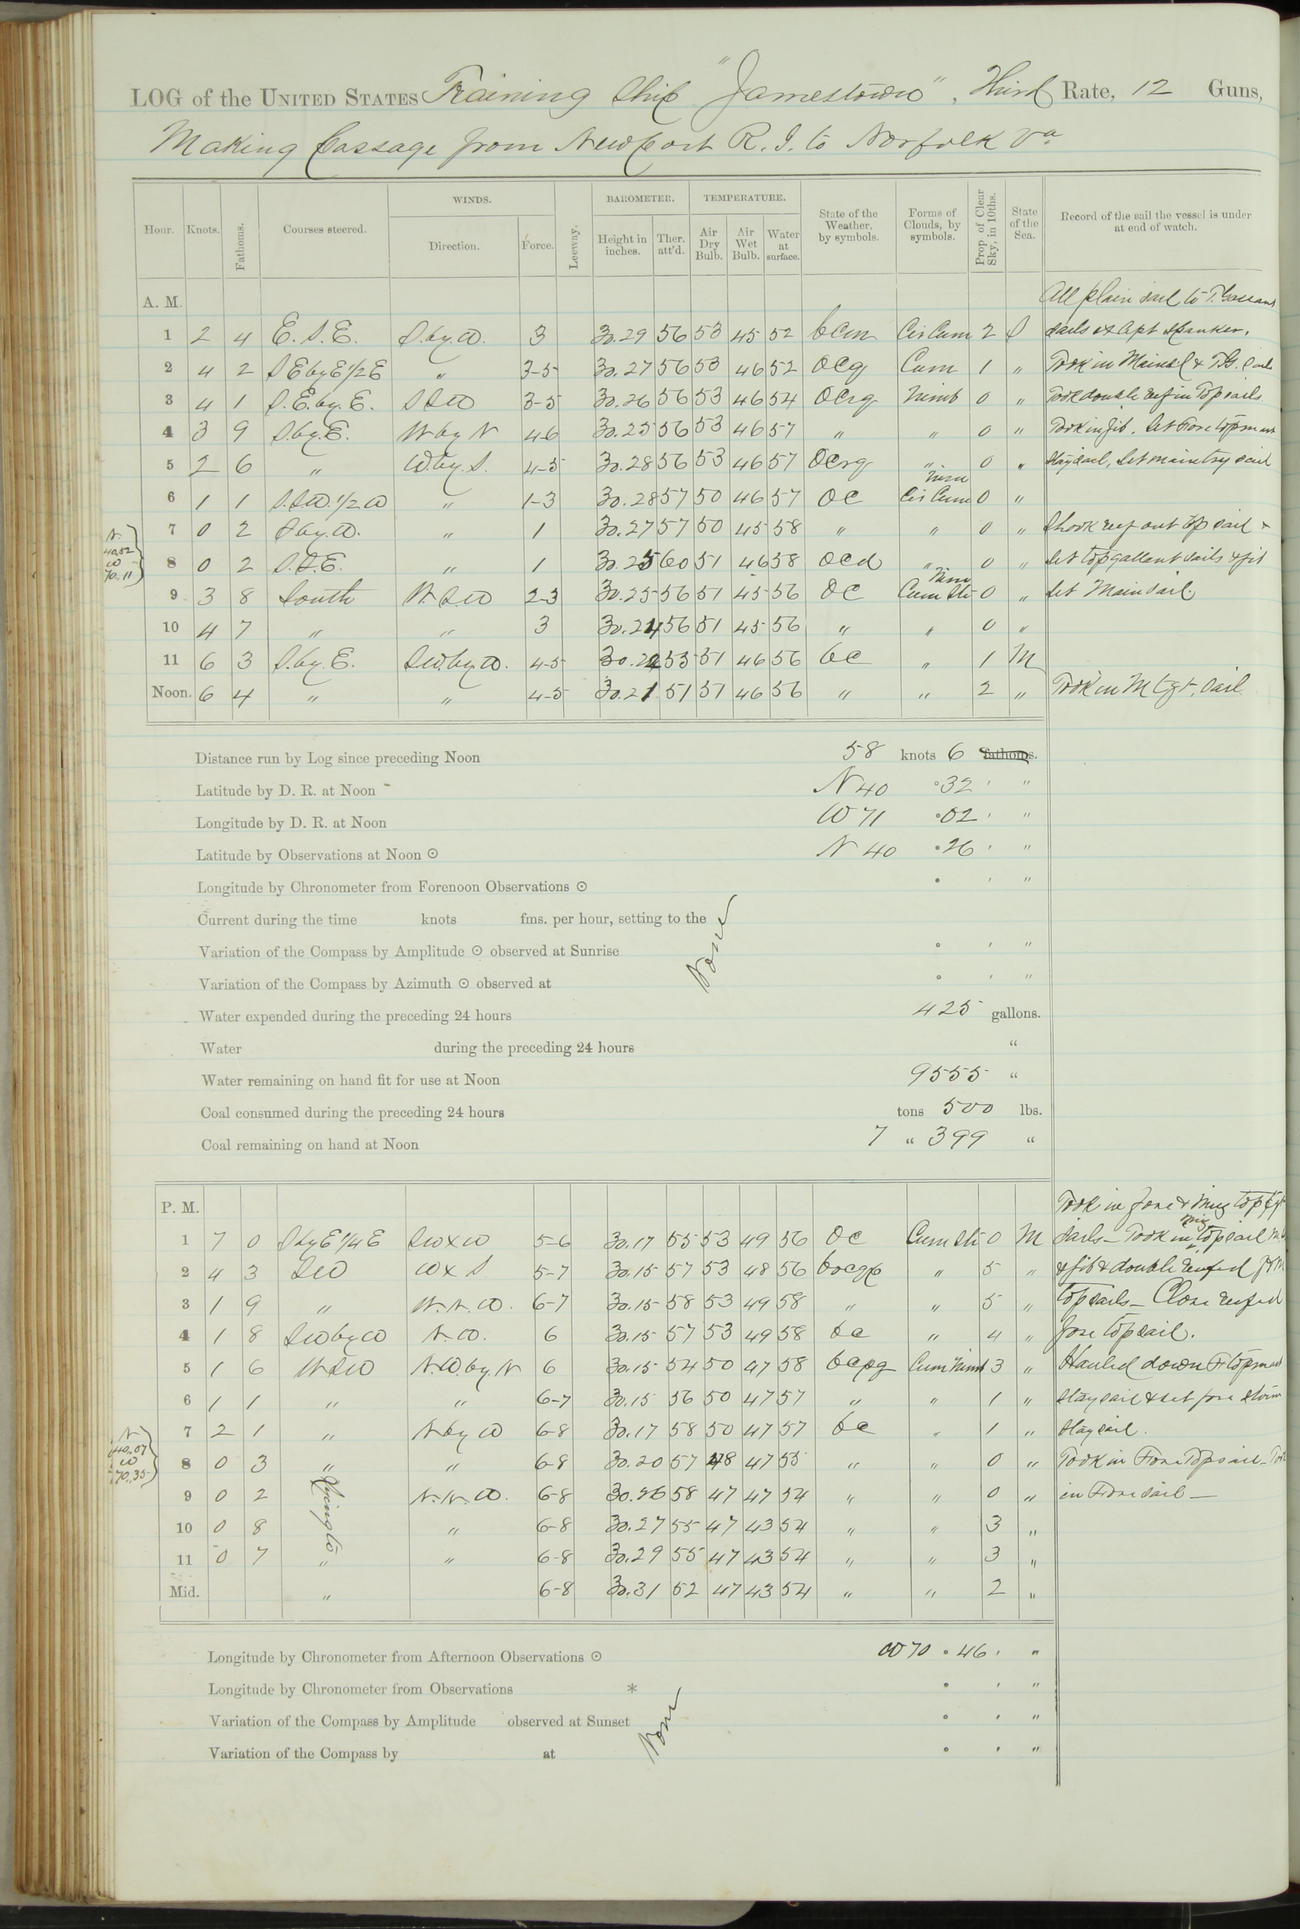 LOG of the UNITED STATES Training Ship "Jamestown", Third Rate, 12 Guns,
Making Passage from Newport R.I. to Norfolk Va
Hour. Knots. Fathoms. Courses steered. WINDS. Direction. Force. Leeway. BAROMETER. Height in inches. Ther. att'd. TEMPERATURE. Air Dry Bulb. Air Wet Bulb. Water at surface. State of the Weather, by symbols. Forms of Clouds, by symbols. Prop. of Clear Sky, in 10ths. State of the Sea. Record of the sail the vessel is under at end of watch.
A. M. All plain sail to T. Gallant
1 2 4 E. S. E. S. by W. 3 30.29 56 53 45 52 bcm Cir Cum 2 S sails ex apt Spanker.
2 4 2 SE by E 1/2 E " 3-5 30.27 56 53 46 52 ocq Cum 1 " Took in Mainsl & T.G. Sails
3 4 1 S. E. by. E. SSW 3-5 30.26 56 53 46 54 ocrq Nimb 0 " Took double reef in Topsails
4 3 9 S. by. E. W by N 4-6 30.25 56 53 46 57 " " 0 " Took in jib. Set Fore topmast
5 2 6 " W. by. S. 4-5 30.28 56 53 46 57 ocrq " 0 " staysail, Set main try sail
6 1 1 S. SW. 1/2 W " 1-3 30.28 57 50 46 57 oc Nim Cir Cum 0 "
7 0 2 S by. W. " 1 30.27 57 50 45 58 " " 0 " Shook reef out top sail &
N 40.52 W 70.11
8 0 2 S. S. E. " 1 30.25 60 51 46 58 ocd " 0 " Set topgallant sails & jib
9 3 8 South W. SW 2-3 30.25 56 51 45 56 oc Nim Cum Str 0 " Set Mainsail
10 4 7 " " 3 30.24 56 51 45 56 " " 0 "
11 6 3 S. by. E. SW. by W. 4-5 30.22 55 51 46 56 bc " 1 M
Noon. 6 4 " " 4-5 30.21 51 51 46 56 " " 2 " Took in M tgt. Sail
Distance run by Log since preceding Noon 58 knots 6 fathoms.
Latitude by D. R. at Noon N 40 ° 32 ' "
Longitude by D. R. at Noon W 71 ° 02 ' "
Latitude by Observations at Noon ☉ N 40 ° 26 ' "
Longitude by Chronometer from Forenoon Observations ☉ ° ' "
Current during the time knots fms. per hour, setting to the
Variation of the Compass by Amplitude ☉ observed at Sunrise None ° ' "
Variation of the Compass by Azimuth ☉ observed at ° ' "
Water expended during the preceding 24 hours 425 gallons.
Water during the preceding 24 hours "
Water remaining on hand fit for use at Noon 9555 "
Coal consumed during the preceding 24 hours tons 500 lbs.
Coal remaining on hand at Noon 7 " 399 "
P. M. Took in fore & Miz top gt
1 7 0 S by E 1/4 E SW x W 5-6 30.17 55 53 49 56 oc Cum Str 0 M sails - Took in miz topsail
2 4 3 SW W x S 5-7 30.15 57 53 48 56 " 5 " & jib & double reefed F & M
3 1 9 " W. N. W. 6-7 30.15 58 53 49 58 " " 5 " topsails - Close reefed
4 1 8 SW by W N. W. 6 30.15 57 53 49 58 bc " 4 " fore topsail.
5 1 6 W SW N. W. by. N 6 30.15 54 50 47 58 bcpq Cum Nimb 3 " Hauled down F topmast
6 1 1 " " 6-7 30.15 56 50 47 57 " " 1 " staysail & set fore storm
7 2 1 " N by W 6-8 30.17 58 50 47 57 bc " 1 " staysail.
N 40.07 W 70.35
8 0 3 " " 6-8 30.20 57 48 47 55 " " 0 " Took in Fore Topsail - Took
9 0 2 Lying to N. N. W. 6-8 30.26 58 47 47 54 " " 0 " in Fore sail -
10 0 8 " 6-8 30.27 55 47 43 54 " " 3 "
11 0 7 " " 6-8 30.29 55 47 43 54 " " 3 "
Mid. " 6-8 30.31 52 47 43 54 " " 2 "
Longitude by Chronometer from Afternoon Observations ☉ W 70 ° 46 ' "
Longitude by Chronometer from Observations * ° ' "
Variation of the Compass by Amplitude observed at Sunset None ° ' "
Variation of the Compass by at ° ' "